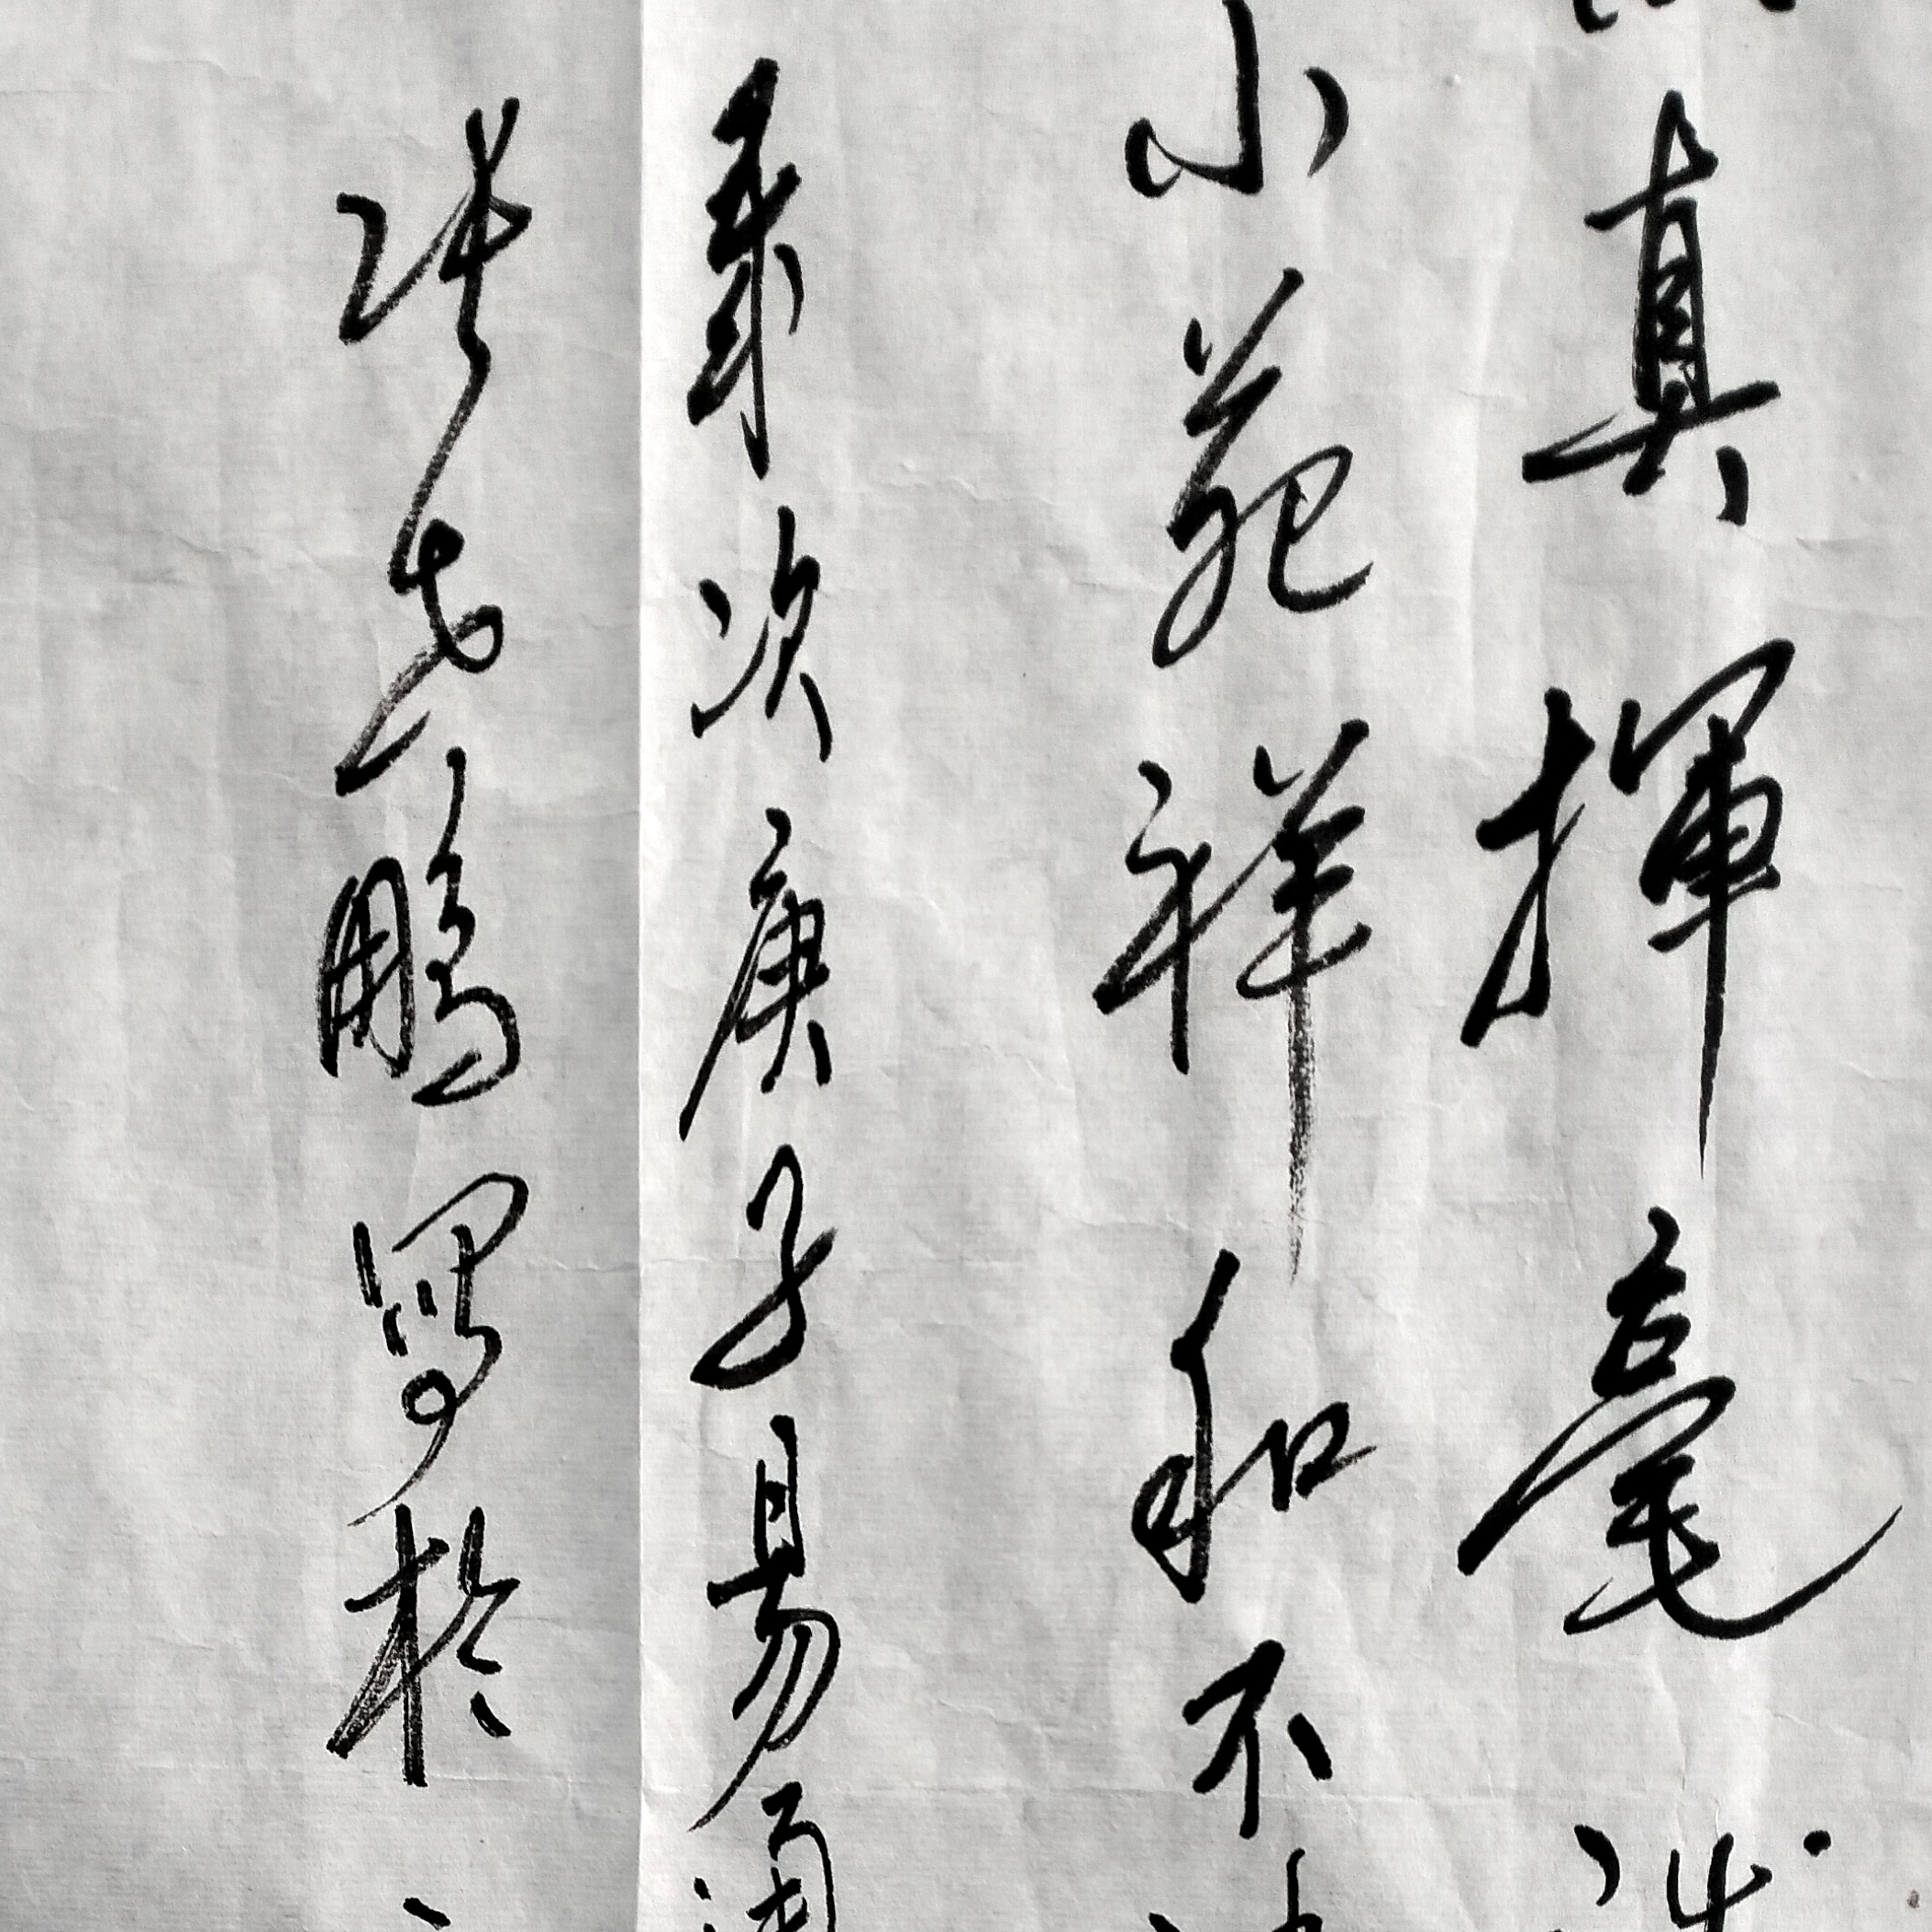 真揮毫
小苑祥和不
歲次庚子易
張鵬寫於